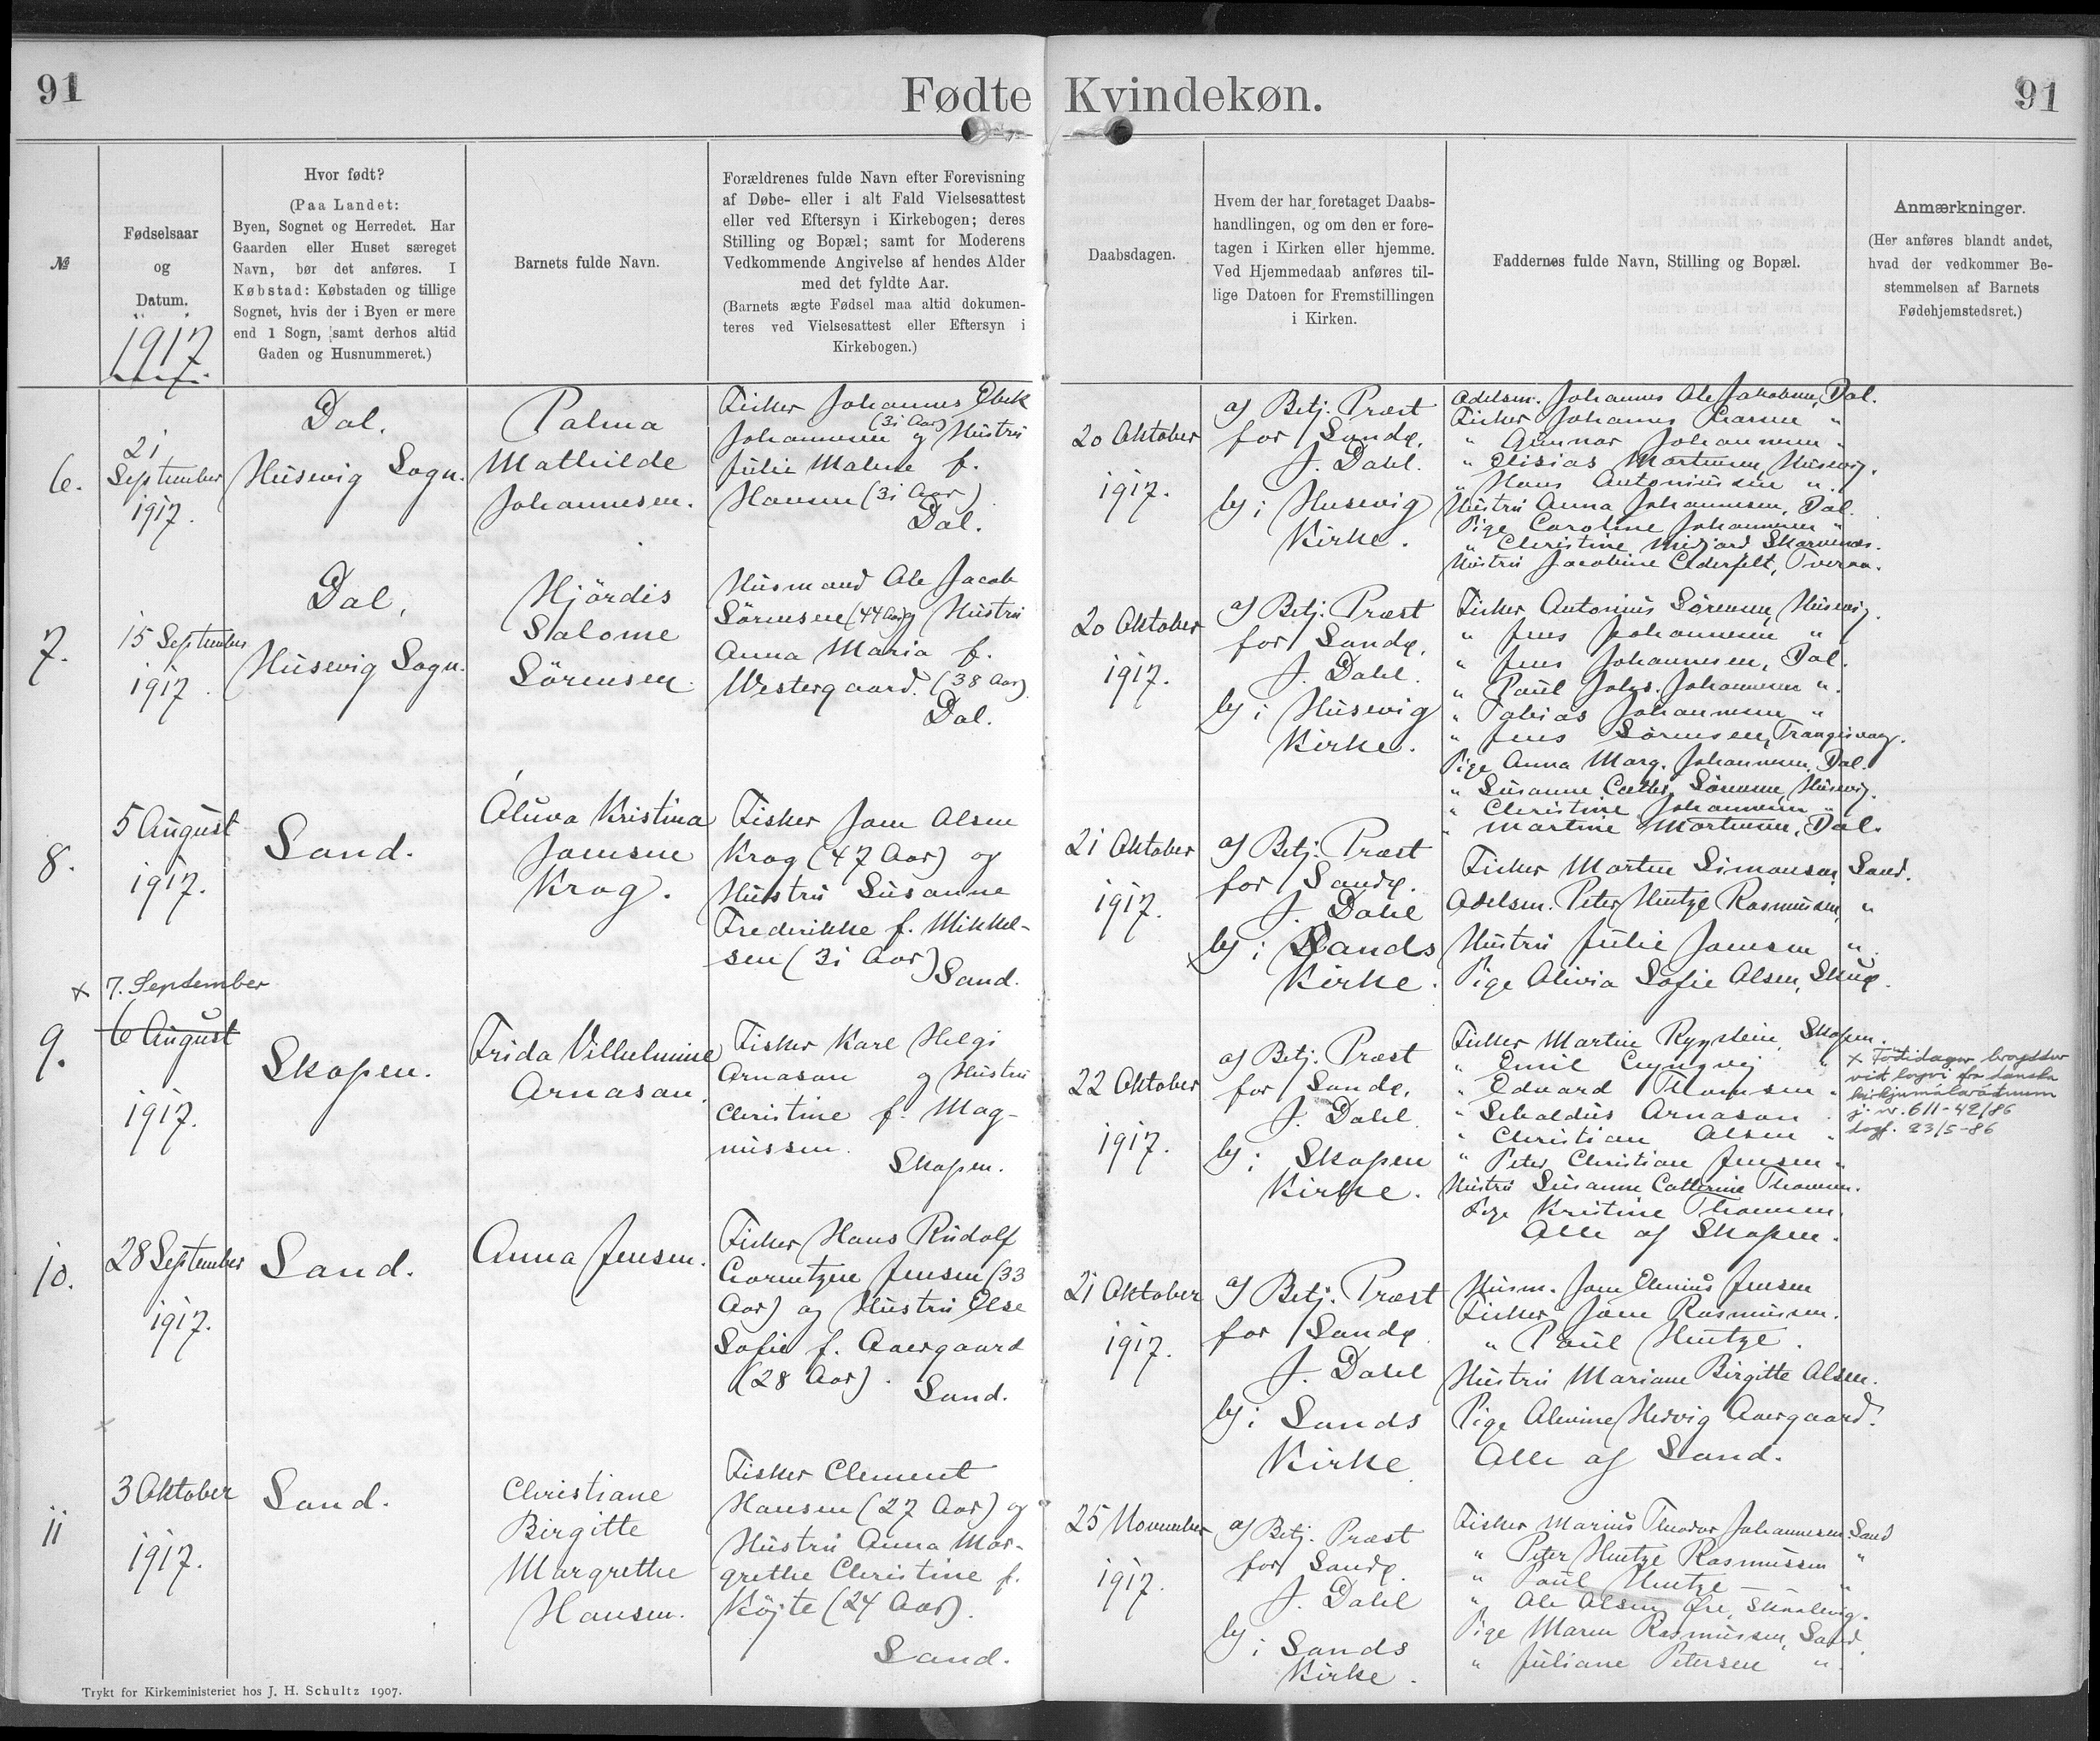 91
Fødte Kvindekøn.
91
№
Fødselsaar
og
Datum.
1917
Hvor født?
(Paa Landet:
Byen, Sognet og Herredet. Har
Gaarden eller Huset særeget
Navn, bør det anføres. I
Købstad: Købstaden og tillige
Sognet, hvis der i Byen er mere
end 1 Sogn, samt derhos altid
Gaden og Husnummeret.)
Barnets fulde Navn.
Forældrenes fulde Navn efter Forevisning
af Døbe- eller i alt Fald Vielsesattest
eller ved Eftersyn i Kirkebogen; deres
Stilling og Bopæl; samt for Moderens
Vedkommende Angivelse af hendes Alder
med det fyldte Aar.
(Barnets ægte Fødsel maa altid dokumen-
teres ved Vielsesattest eller Eftersyn i
Kirkebogen.)
Daabsdagen.
Hvem der har foretaget Daabs-
handlingen, og om den er fore-
tagen i Kirken eller hjemme.
Ved Hjemmedaab anføres til-
lige Datoen for Fremstillingen
i Kirken.
Faddernes fulde Navn, Stilling og Bopæl.
Anmærkninger.
(Her anføres blandt andet,
hvad der vedkommer Be-
stemmelsen af Barnets
Fødehjemstedsret.)
6.
21
September
1917.
Dal.
Husevig Sogn.
Palma
Mathilde
Johannesen.
Fisker Johannes
(31 Aar)
Johannesen og Hustru
Julie Malene f.
(31 Aar)
Dal.
20 Oktober
1917.
af Betj. Præst
for Sandø.
J. Dahl.
i Husevig
Kirke.
Odelsm. Johannes Ole Jakobsen, Dal.
Fisker Johannes "
" Gunnar Johannesen "
" Elisias Mortensen, Husevig.
" Hans Antoniussen "
Hustru Anna Johannesen, Dal.
Pige Caroline Johannesen "
" Christine Midjord Skarvenæs.
Hustru Jacobine
7.
15 September
1917.
Dal,
Husevig Sogn.
Hjördis
Salome
Sörensen.
Husmand Ole Jacob
Sörensen (44 Aar) og Hustru
Anna Maria f.
Westergaard. (38 Aar).
Dal.
20 Oktober
1917.
af Betj. Præst
for Sandø.
J. Dahl.
i Husevig
Kirke.
Fisker Antonius Sörensen, Husevig.
" Jens Johannesen "
" Jens Johannesen, Dal.
" Paul Johs. Johannesen "
" Tobias Johannesen "
" Jens Sörensen, Trangisvaag.
Pige Anna Marg. Johannesen, Dal.
" Susanne Cathr. Sörensen, Husevig.
" Christine Johannesen "
" Martine Mortensen, Dal.
8.
5 August
1917.
Sand.
Óluva Kristina
Joensen
Krog.
Fisker Joen Olsen
Krog (47 Aar) og
Hustru Susanne
Frederikke f. Mikkel-
sen (31 Aar)
Sand.
21 Oktober
1917.
af Betj. Præst
for Sandø.
J. Dahl
i Sands
Kirke.
Fisker Morten Simonsen, Sand.
Odelsm. Peter Hentze Rasmussen, "
Hustru Julie Joensen "
Pige Olivia Sofie Olsen, Skuø.
x 7. September
9.
6 August
1917.
Skopen.
Frida Vilhelmine
Arnason.
Fisker Karl Helgi
Arnason og Hustru
Christine f. Mag-
nussen.
Skopen.
22 Oktober
1917.
af Betj. Præst
for Sandø.
J. Dahl
i Skopen
Kirke.
Fisker Martin Rygstein, Skopen.
" Emil Lyngvej "
" Edvard Thomsen "
" Sebaldus Arnason "
" Christian Olsen "
" Peter Christian Jensen "
Hustru Susanne Catherine Thomsen.
Pige Kristine Thomsen.
Alle af Skopen.
x Føðidagur broyttur
við loyvi frá danska
kirkjumálaráðnum
j. nr. 611-42/86
dagf. 23/5-86
10.
28 September
1917.
Sand.
Anna Jensen.
Fisker Hans Rudolf
Lorentzen Jensen (33
Aar) og Hustru Else
Sofie f. Aaergaard
(28 Aar).
Sand.
21 Oktober
1917.
af Betj. Præst
for Sandø
J. Dahl
i Sands
Kirke
Husm. Joen Elenius Jensen
Fisker Joen Rasmussen.
" Paul Hentze.
Hustru Mariane Birgitte Olsen.
Pige Alvine Hedvig Aaergaard.
Alle af Sand.
11
3 Oktober
1917.
Sand.
Christiane
Birgitte
Margrethe
Hansen.
Fisker Clement
Hansen (27 Aar) og
Hustru Anna Mar-
grethe Christine f.
Kőjte (24 Aar).
Sand.
25 November
1917.
af Betj. Præst
for Sandø.
J. Dahl
i Sands
Kirke.
Fisker Marius Theodor Johannesen, Sand
" Peter Hentze Rasmussen "
" Paul Hentze — "
" Ole Olsen Øre, Skaalevig.
Pige Maren Rasmussen, Sand.
" Juliane Petersen "
Trykt for Kirkeministeriet hos J. H. Schultz 1907.